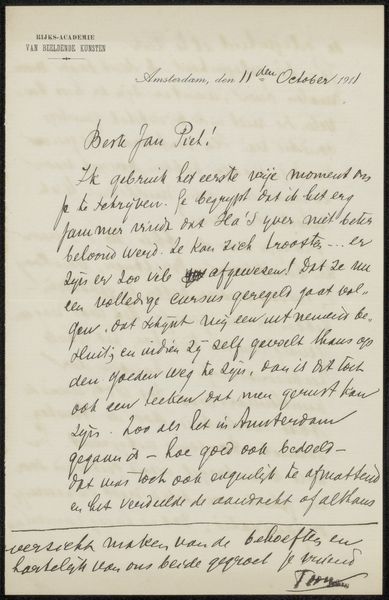 RIJKS-ACADEMIE
VAN BEELDENDE KUNSTEN
Amsterdam, den 11den October 1911
Beste Jan Piet!
Ik gebruik het eerste vrije moment om
je te schrijven. Je begrypt dat ik het erg
jammer vind dat Ha's yver niet beter
beloond werd. Ze kan zich troosten ... er
zyn er zoo vele afgewezen! Dat ze nu
een volledige cursus geregeld gaat vol-
gen, dat schynt my een uitnemend be-
sluit, en indien zy zelf gevoelt thans op
den goeden weg te zyn, dan is dit toch
ook een teeken dat men gerust kan
zyn. Zoo als het in Amsterdam
gegaan is – hoe goed ook bedoeld –
dat was toch ook eigenlyk te afmattend
en het verdeelde de aandacht of althans
maken van de behoeften en
hartelyk van ons beide gegroet je vriend
Toon